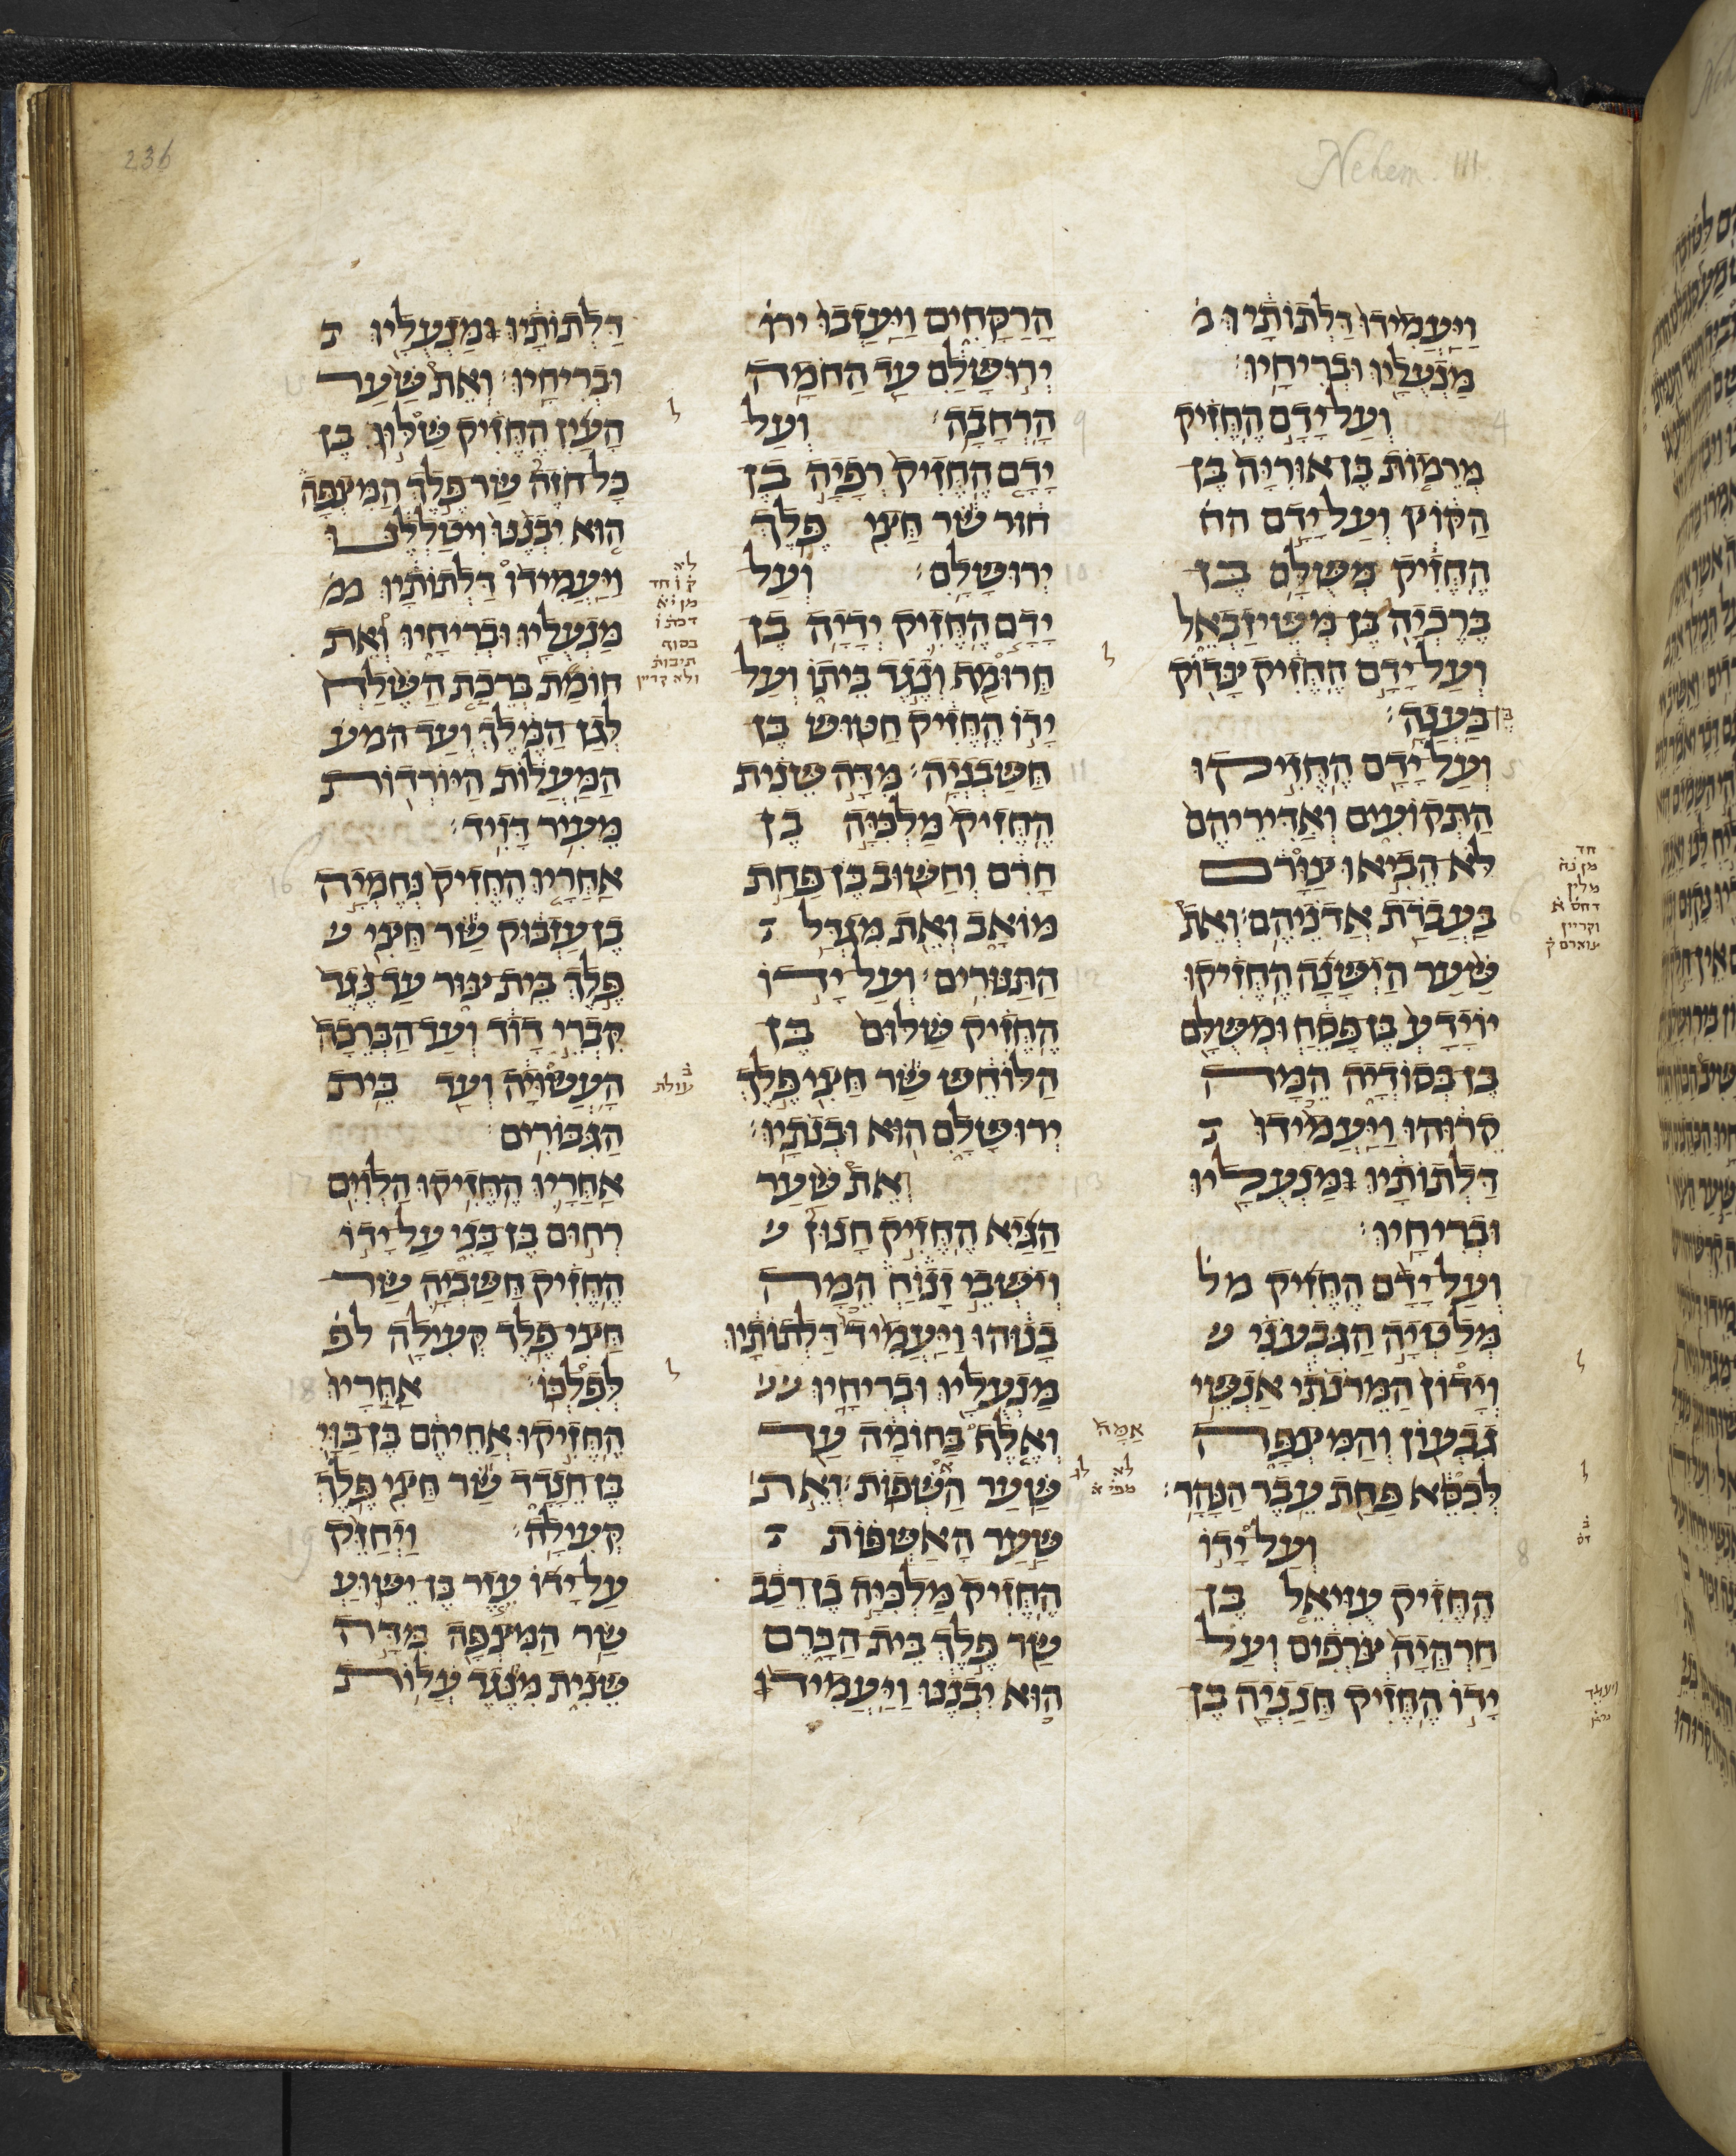 236
Nehem. III.
וַיַּעֲמִידוּ דַּלְתוֹתָיו מ
מַנְעֻלָיו וּבְרִיחָיו׃
4 וְעַל יָדָם הֶחֱזִיק
מְרֵמוֹת בֶּן אוּרִיָּה בֶּן
הַקּוֹץ וְעַל יָדָם הח
הֶחֱזִיק מְשֻׁלָּם בֶּן
בֶּרֶכְיָה בֶּן מְשֵׁיזַבְאֵל
וְעַל יָדָם הֶחֱזִיק צָדוֹק
בֶּן בַּעֲנָה׃
5 וְעַל יָדָם הֶחֱזִיקוּ
הַתְּקוֹעִים וְאַדִּירֵיהֶם
לֹא הֵבִיאוּ צַוָּרָם
6 בַּעֲבֹדַת אֲדֹנֵיהֶם׃ וְאֵת
שַׁעַר הַיְשָׁנָה הֶחֱזִיקוּ
יוֹיָדָע בֶּן פָּסֵחַ וּמְשֻׁלָּם
בֶּן בְּסוֹדְיָה הֵמָּה
קֵרוּהוּ וַיַּעֲמִידוּ ד
דַּלְתוֹתָיו וּמַנְעֻלָיו
וּבְרִיחָיו׃
7 וְעַל יָדָם הֶחֱזִיק מל
מְלַטְיָה הַגִּבְעֹנִי
וְיָדוֹן הַמֵּרֹנֹתִי אַנְשֵׁי
גִבְעוֹן וְהַמִּצְפָּה
לְכִסֵּא פַּחַת עֵבֶר הַנָּהָר׃
8 וְעַל יָדוֹ
הֶחֱזִיק עֻזִּיאֵל בֶּן
חַרְהֲיָה צֹרְפִים וְעַל
יָדוֹ הֶחֱזִיק חֲנַנְיָה בֶּן
הָרַקָּחִים וַיַּעַזְבוּ ירו
יְרוּשָׁלִַם עַד הַחֹמָה
9 הָרְחָבָה׃ וְעַל
יָדָם הֶחֱזִיק רְפָיָה בֶן
חוּר שַׂר חֲצִי פֶּלֶךְ
10 יְרוּשָׁלִָם׃ וְעַל
יָדָם הֶחֱזִיק יְדָיָה בֶן
חֲרוּמַף וְנֶגֶד בֵּיתוֹ וְעַל
יָדוֹ הֶחֱזִיק חַטּוּשׁ בֶּן
11 חֲשַׁבְנְיָה׃ מִדָּה שֵׁנִית
הֶחֱזִיק מַלְכִּיָּה בֶן
חָרִם וְחַשּׁוּב בֶּן פַּחַת
מוֹאָב וְאֵת מִגְדַּל ד
12 הַתַּנּוּרִים׃ וְעַל יָדוֹ
הֶחֱזִיק שַׁלּוּם בֶּן
הַלּוֹחֵשׁ שַׂר חֲצִי פֶּלֶךְ
יְרוּשָׁלִָם הוּא וּבְנֹתָיו׃
13 אֵת שַׁעַר
הַגַּיְא הֶחֱזִיק חָנוּן
וְיֹשְׁבֵי זָנוֹחַ הֵמָּה
בָנוּהוּ וַיַּעֲמִיד דַּלְתוֹתָיו
מַנְעֻלָיו וּבְרִיחָיו
וְאֶלֶף בַּחוֹמָה עַד
שַׁעַר הָשְׁפוֹת׃ וְאֵת
14 שַׁעַר הָאַשְׁפּוֹת ד
הֶחֱזִיק מַלְכִּיָּה בֶן רֵכָב
שַׂר פֶּלֶךְ בֵּית הַכָּרֶם
הוּא יִבְנֶנּוּ וַיַּעֲמִיד
דַּלְתוֹתָיו וּמַנְעֻלָיו ד
וּבְרִיחָיו׃ וְאֵת שַׁעַר
הָעַיִן הֶחֱזִיק שַׁלּוּן בֶּן
כָּל חֹזֶה שַׂר פֶּלֶךְ הַמִּצְפָּה
הוּא יִבְנֶנּוּ וִיטַלְלֶנּוּ
וַיַּעֲמִידוּ דַּלְתוֹתָיו
מַנְעֻלָיו וּבְרִיחָיו וְאֵת
חוֹמַת בְּרֵכַת הַשֶּׁלַח
לְגַן הַמֶּלֶךְ וְעַד המע
הַמַּעֲלוֹת הַיּוֹרְדוֹת
מֵעִיר דָּוִיד׃
16 אַחֲרָיו הֶחֱזִיק נְחֶמְיָה
בֶן עַזְבּוּק שַׂר חֲצִי
פֶּלֶךְ בֵּית צוּר עַד נֶגֶד
קִבְרֵי דָוִד וְעַד הַבְּרֵכָה
הָעֲשׂוּיָה וְעַד בֵּית
הַגִּבּוֹרִים׃
17 אַחֲרָיו הֶחֱזִיקוּ הַלְוִיִּם
רְחוּם בֶּן בָּנִי עַל יָדוֹ
הֶחֱזִיק חֲשַׁבְיָה שַׂר
חֲצִי פֶלֶךְ קְעִילָה לפ
18 לְפִלְכּוֹ׃ אַחֲרָיו
הֶחֱזִיקוּ אֲחֵיהֶם בַּוַּי
בֶּן חֵנָדָד שַׂר חֲצִי פֶּלֶךְ
19 קְעִילָה׃ וַיְחַזֵּק
עַל יָדוֹ עֵזֶר בֶּן יֵשׁוּעַ
שַׂר הַמִּצְפָּה מִדָּה
שֵׁנִית מִנֶּגֶד עֲלוֹת
חד
מן נה
מלין
דחס א
וקריין
אַמָּה
לא
לא
ק ו חד
מן יא
דכת ו
בסוף
תיבות
ולא קריין